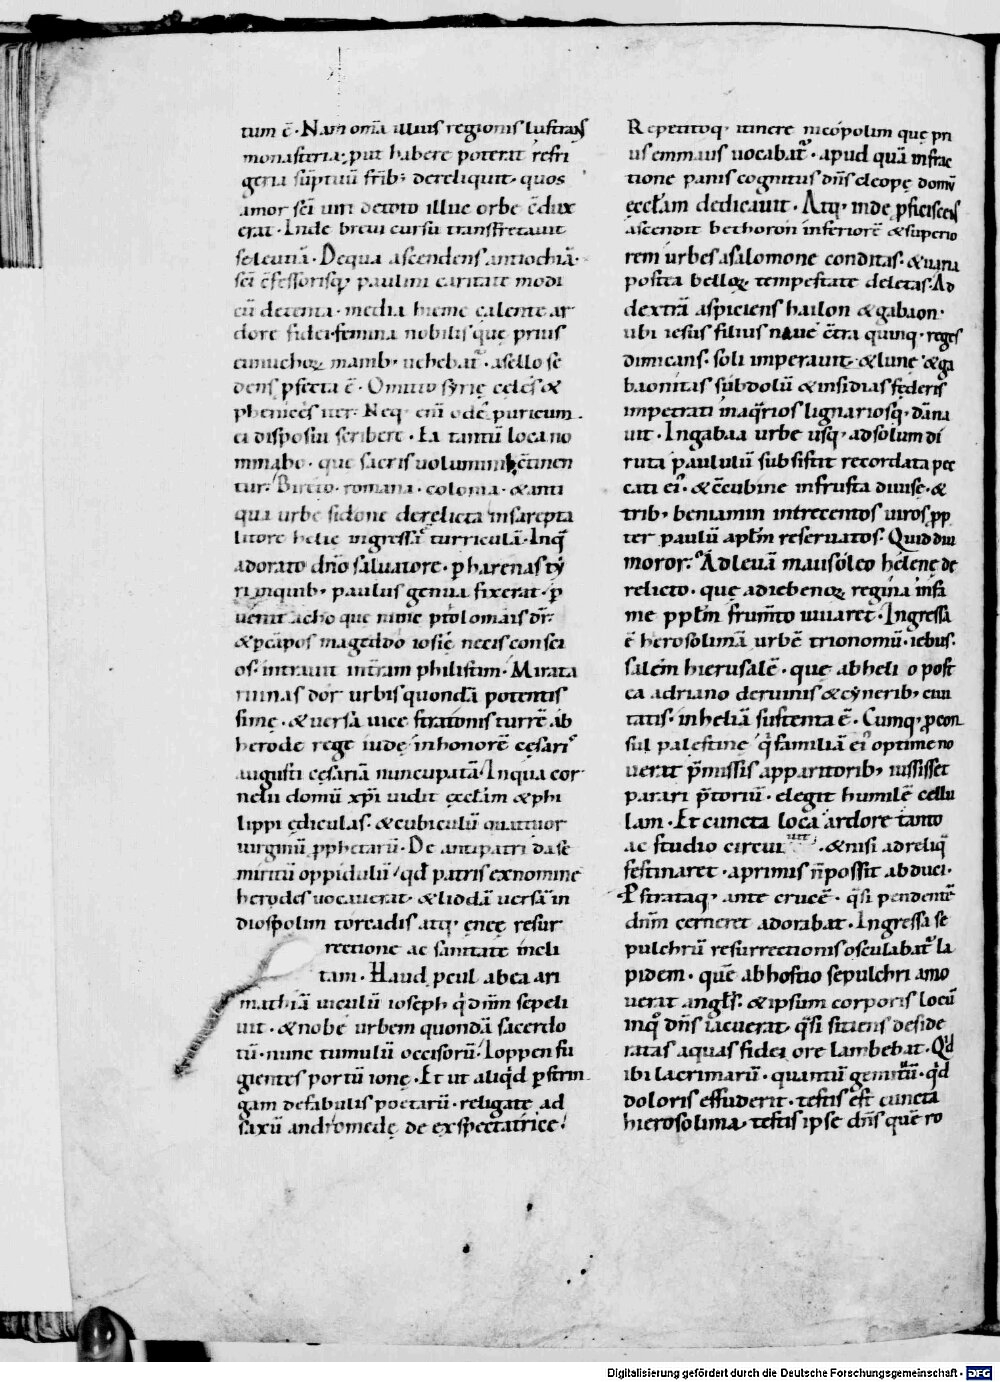 tum ē· Nam om̄a illius regionis lustrans
monasteria, put habere poterat refri
geria sūptuū frib; dereliquit· quos
amor sci uiri de toto illuc orbe c̄dux
erat· Inde breui cursu transfretauit
seleuciā· De qua ascendens antiochiā·
sci c̄fessorisq; paulini caritate modi
cū detenta· media hieme calente ar
dore fidei· femina nobilis que prius
eunuchoꝝ manib; uehebat᷑· asello se
dens pfecta ē· Omitto syrię celes &
phenices iter· Neq; eni odeporicum
ei disposui scribere· Ea tantū loca no
minabo· que sacris uoluminib; c̄tinen
tur· Birito· romana· colonia· & anti
qua urbe sidone derelicta in sarepta
litore helie ingressa᷑ turriculā· In q̄
adorato dn̄o saluatore· p harenas ty
ri in quib; paulus genua fixerat· p
uenit acho que nunc ptolomais dr̄·
& p cāpos mageddo iosię necis consci
os· intrauit in t̄ram philistim· Mirata
ruinas dor· urbis quondā potentis
sime· & uersa uice stratonis turrē ab
herode rege iudę in honorē cęsaris
augusti cęsariā nuncupatā· In qua cor
nelii domū xp̄i uidit ęccłam & phi
lippi ędiculas· & cubiculū quattuor
uirginū pphetarū· De antipatri da se
mirutū oppidulū· qd̄ patris ex nomine
herodes uocauerat· & liddā uersā in
diospolim torcadis atq; eneę resur
rectione ac sanitate incli
tam· Haud pcul ab ea ari
mathiā uiculū ioseph q̇ dn̄m sepeli
uit· & nobe urbem quondā sacerdo
tū· nunc tumulū occisorū· Ioppen fu
gientes portū ionę· Et ut aliq̇d pstrin
gam de fabulis poetarū· religate ad
saxū andromedę de ex spectatrice·
Repetitoq; itinere nicopolim que pri
us emmaus uocabat᷑· apud quā in frac
tione panis cognitus dn̄s cleopę domū
ęccłam dedicauit· Atq; inde pficiscens
ascendit bethoron inferiorē & superio
rem urbes a salomone conditas· & uaria
postea belloꝝ tempestate deletas· Ad
dextrā aspiciens hailon & gabaon·
ubi iesus filius naue c̄tra quinq; reges
dimicans· soli imperauit· & lune· & ga
baonitas sub dolū & insidias fęderis
impetrati in aq̄rios lignariosq; dāna
uit· In gabaa urbe usq; ad solum di
ruta paululū subsistit recordata pec
cati ei᷒· & c̄cubine in frusta diuisę· &
trib; beniamin in trecentos uiros pp
ter paulū apłm reseruatos· Quid diu
moror· Ad leuā mausoleo helenę de
relicto· que adiebenoꝝ regina in fa
me ppłm frum̄to iuuaret· Ingressa
ē hierosolimā urbē trionomū· iebus·
salem hierusalē· que ab heli o post
ea adriano de ruinis & cynerib; ciui
tatis· in heliā suftenta ē· Cumq; pcon
sul palestinę q̇ familiā ei᷒ optime no
uerat p̄missis apparitorib; iussisset
parari p̄toriū· elegit humilē cellu
lam· Et cuncta loca ardore tanto
ac studio circuiuit· & nisi ad reliq̄
festinaret· a primis n̄ possit abduci·
Pstrataq; ante crucē· q̄si pendentē
dn̄m cerneret adorabat· Ingressa se
pulchrū resurrectionis osculabat᷑ la
pidem· quē ab hostio sepulchri amo
uerat angłs· & ipsum corporis locū
in q̊ dn̄s iacuerat, q̄si sitiens deside
ratas aquas fidei ore lambebat· Qd̄
ibi lacrimarū· quantū gemituū· qd̄
doloris effuderit· testis est cuncta
hierosolima· testis ipse dn̄s quē ro
Digitalisierung gefördert durch die Deutsche Forschungsgemeinschaft - DFG